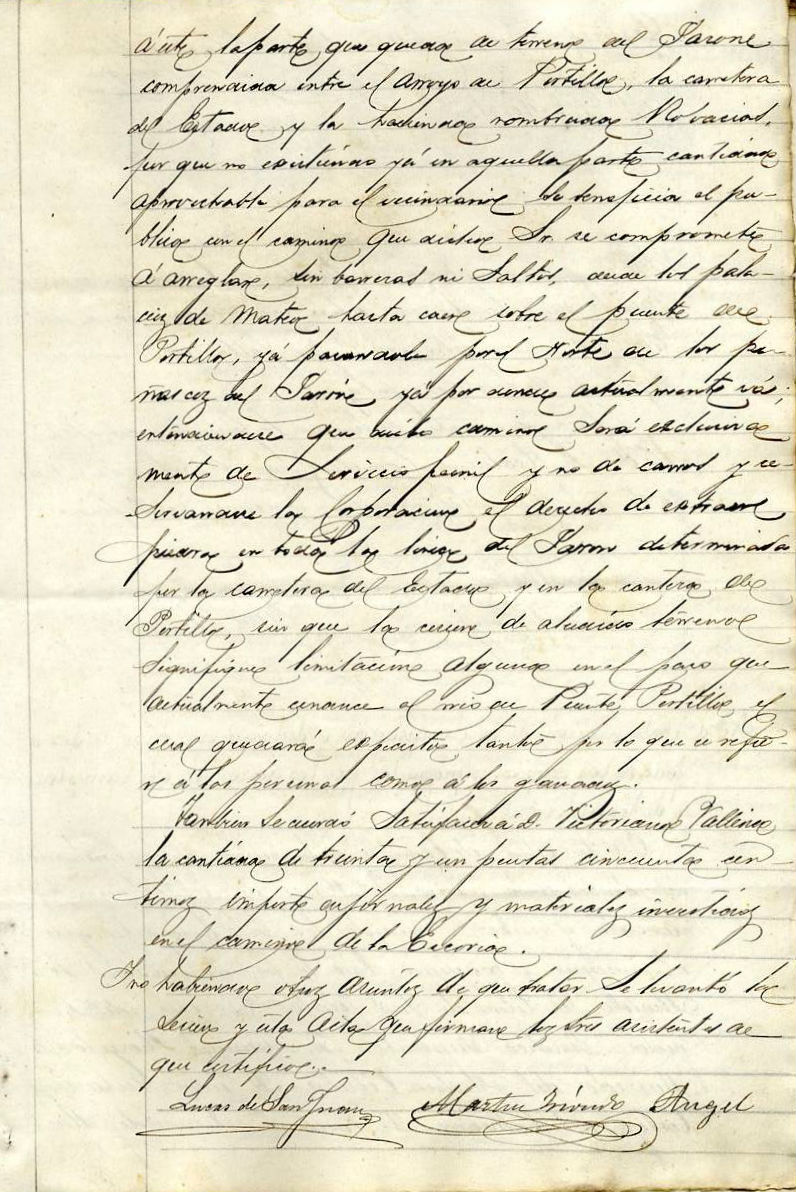 á este la parte que queda de terreno del Jarone
comprendida entre el arroyo de Portillo, la carretera
del Estado y la hacienda nombrada Robacias,
por que no existiendo yá en aquella parte cantidad
aprovechable para el vecindario se beneficia el pu-
blico con el camino que dicho Sr. se compromete
á arreglar, sin barreras ni Saltos, desde los pala-
cios de Mateo hasta caer sobre el puente de
Portillo, yá pasandole por el Norte de los pe-
ñascos del Jaron, yá por donde actualmente vá;
entendiendose que dicho camino será exclusiva
mente de Servicio peonil y no de carros y re-
servandose la Corporacion el derecho de extraer
piedra en toda la linea del Jaron determinada
por la carretera del Estado y en la cantera de
Portillo, sin que la cesion de aludido terreno
signifique limitacion alguna en el paso que
actualmente conduce al de Puente Portillo, el
cual quedará expedito tanto por lo que se refie-
re á las personas como á los ganados.
Tambien se acordó Satisfacer á D. Victoriano Vallina
la cantidad de treinta y un pesetas cincuenta cen
timos importe de jornales y materiales invertidos
en el camino de la Escoria.
Y no habiendo otros asuntos de que tratar se levantó la
sesion y esta acta que firman los Sres asistentes de
que certifico.
Lucas de San Juan Martin Angel